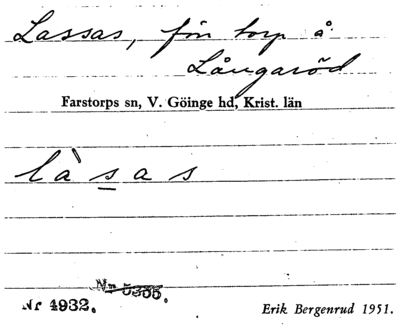 Lassas, förr torp å
Långaröd
Farstorps sn, V. Göinge hd, Krist. län
làsas
Nr 5355.
Nr 4932.
Erik Bergenrud 1951.